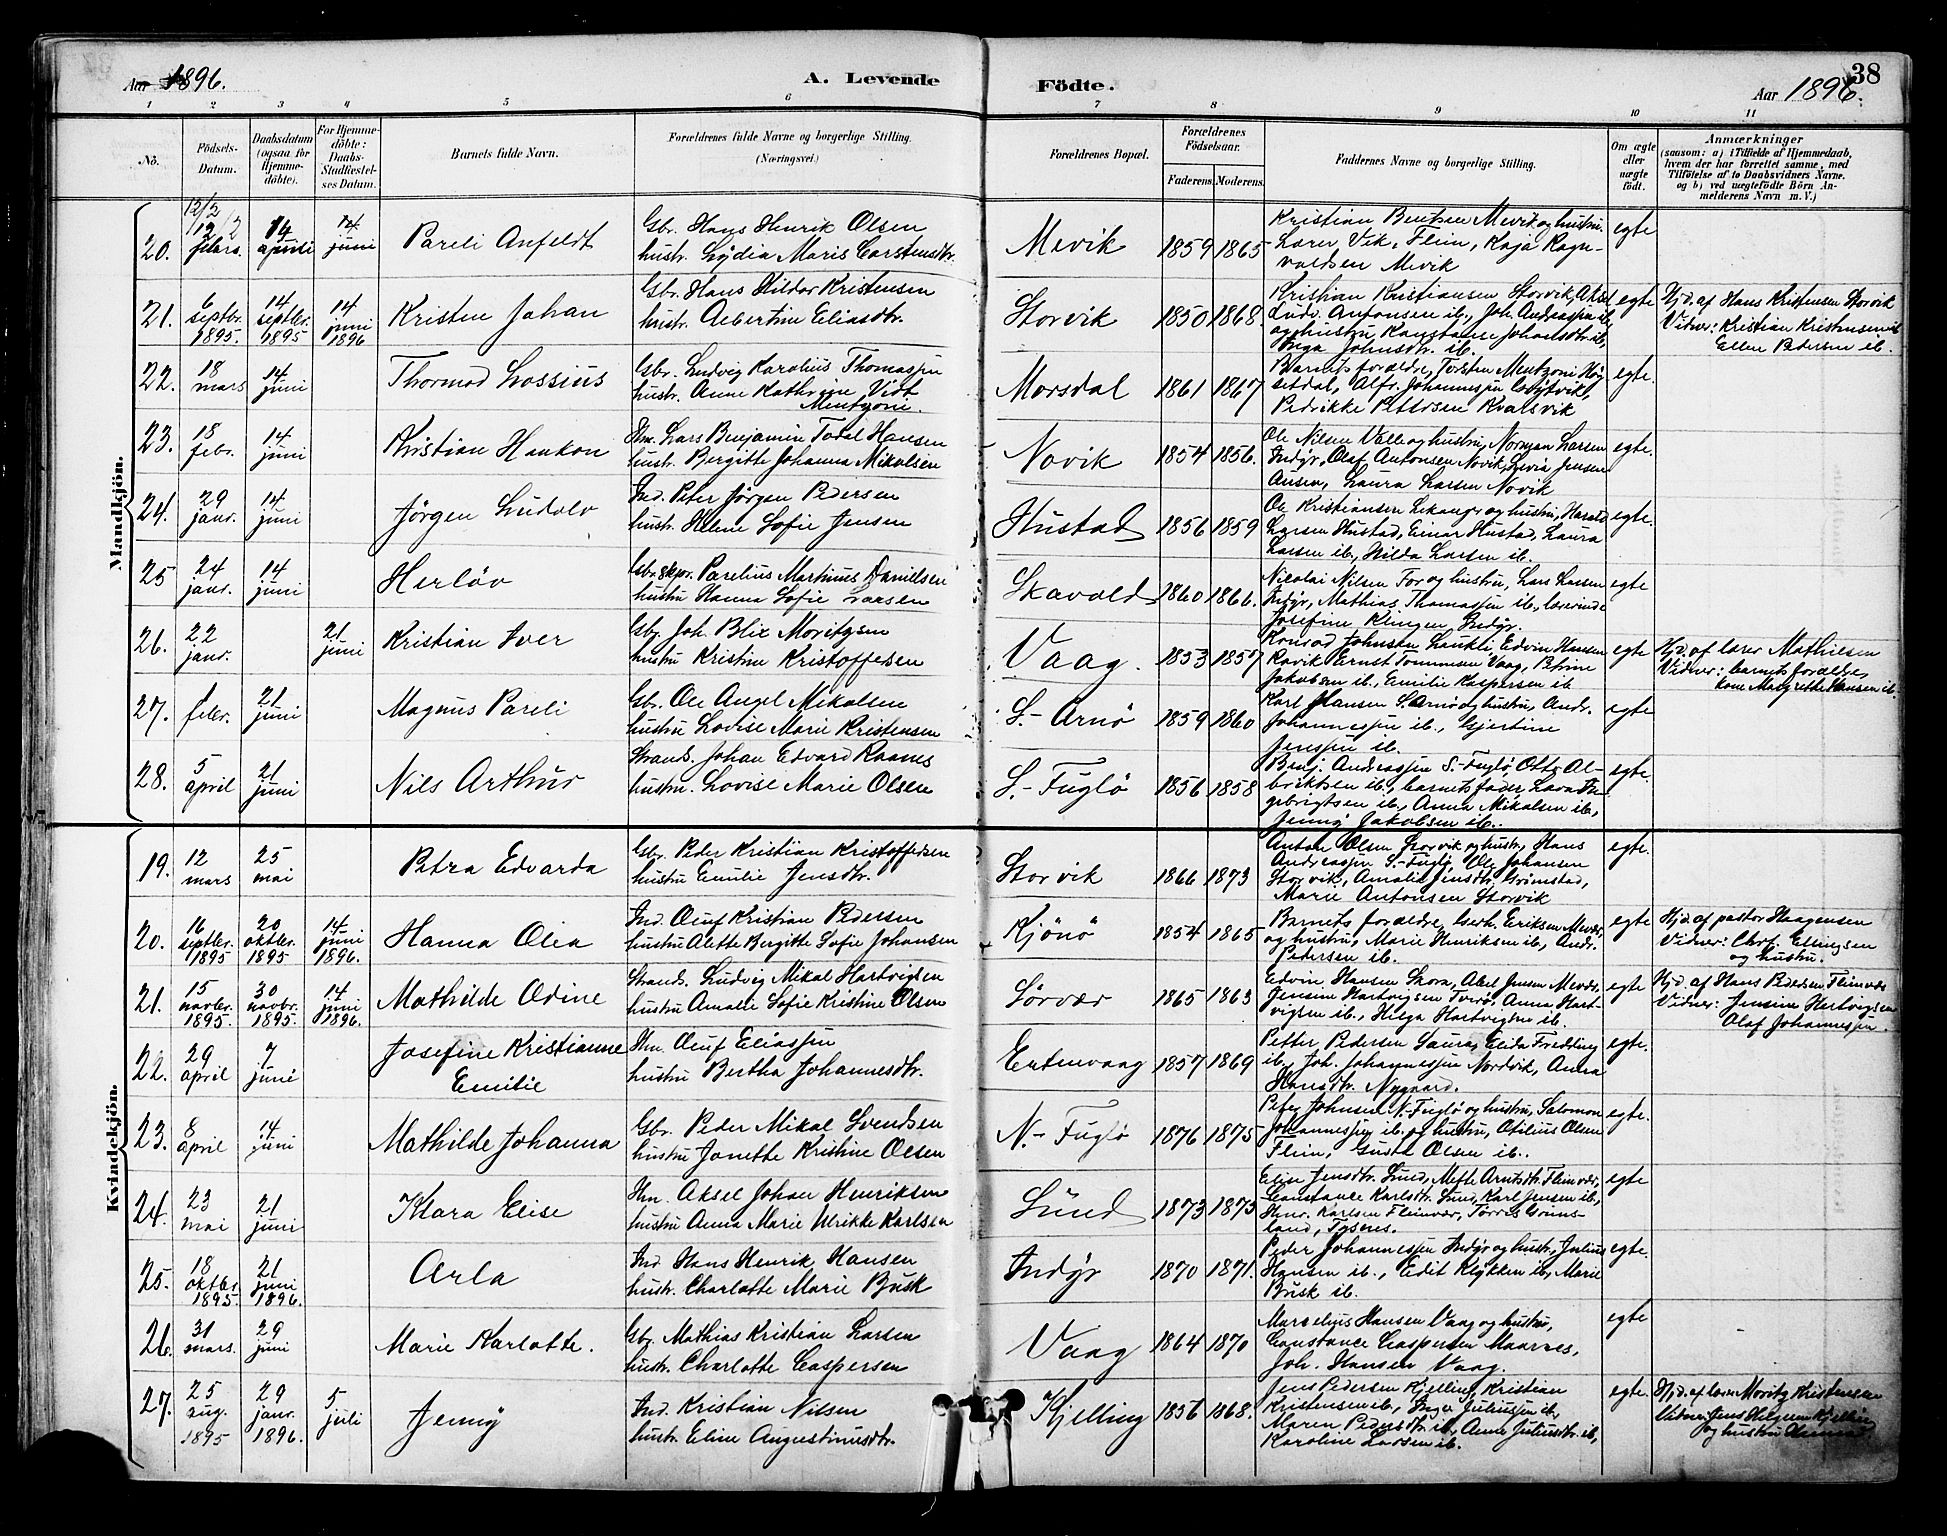 Aar 1896.
A. Levende
Födte.
Aar 1896.
38
1 2 3 4 5 6 7 8 9 10 11
No.
Födsels-
Datum.
Daabsdatum
(ogsaa for
Hjemme-
döbte).
For Hjemme-
döbte:
Daabs-
Stadfæstel-
ses Datum.
Barnets fulde Navn.
Forældrenes fulde Navne og borgerlige Stilling.
(Næringsvei.)
Forældrenes Bopæl.
Forældrenes
Födselsaar.
Faderens. Moderens.
Faddernes Navne og borgerlige Stilling.
Om ægte
eller
uægte
födt.
Anmærkninger
(saasom: a) i Tilfælde af Hjemmedaab,
hvem der har forrettet samme, med
Tilföielse af to Daabsvidners Navne.
og b) ved uægtefödte Börn An-
melderens Navn m. V.)
Mandkjön.
20. 12/2 14 april 14 juni Pareli Anfeldt
Gbr. Hans Henrik Olsen
hustr. Lydia Maris Carstensdtr.
Mevik 1859 1865
Kristian Bentsen Mevik og hustru.
Lærer Vik, Flein, Kaja Ragn-
valdsen Mevik
egte
21. 6 septbr. 1895 14 septbr. 1895 14 juni 1896 Kristen Johan
Gbr. Hans Hildor Kristensen
hustr. Albertine Eliasdtr.
Storvik 1850 1868.
Kristian Kristiansen Storvik, Aksel
Ludv. Antonsen ib., Joh. Andreassen ib.
og hustru, Konstanse Johansdtr. ib,
Inga Johnsdtr. ib.
egte
Hjd. af Hans Kristensen Storvik
Vitner: Kristian Kristensen ib
Ellen Pedersen ib.
22. 18 mars 14 juni Thormod Lossius
Gbr. Ludvig Karolius Thomassen
hustr. Anne Kathrine Vidt
Mentzoni.
Morsdal 1861 1867
Barnets forældre, Torsten Mentzoni Høg
setdal, Alfr. Johannessen
Pedrikke Pettersen Kvalsvik
egte.
23. 18 febr. 14 juni Kristian Haakon
Hm. Lars Benjamin Todal Hansen
hustr. Bergitte Johanna Mikalsen
Novik 1854 1856.
Ole Nilsen Valle og hustru, Norman Larsen
Indyr, Olaf Antonsen Novik, Livia Jensen
Ausen, Laura Larsen Novik
egte.
24. 29 janr. 14 juni Jörgen Ludolv
Ind. Peter Jörgen Pedersen
hustr. Helene Sofie Jensen
Hustad 1856 1859
Ole Kristiansen Lekanger og hustru, Harald
Larsen Hustad, Einar Hustad, Laura
Larsen ib., Hilda Larsen ib.
egte.
25 24 janr. 14 juni Herløv
Gbr. skpr. Parelius Martinus Danielsen
hustru Hanna Sofie Larsen
Skavold 1860 1866.
Nicolai Nilsen For og hustru, Lars Larsen
Indyr, Mathias Thomassen ib., lærerinde
Josefine Klingen Indyr.
egte
26. 22 janr. 21 juni Kristian Iver
Gbr. Joh. Blix Moritzsen
hustru Kristine Kristoffersen
Vaag. 1853 1857
Konrad Johnsen Laukli, Edvin Hansen
Ravik, Ernst Tommesen Vaag, Petrine
Jakobsen ib., Emilie Kaspersen ib
egte
Hjd. af lærer Mathiesen
Vidner: barnets forældre,
kone Margrethe Hansen ib.
27. febr. 21 juni Magnus Pareli
Gbr. Ole Angel Mikalsen
hustru Lovise Marie Kristensen
S.-Arnö 1859 1860
Karl Hansen S. Arnö og hustru, Andr.
Johannessen ib., Gjertine
Jenssen ib.
egte
28. 5 april 21 juni Nils Arthur
Strands. Johan Edvard Raanes
hustru. Lovise Marie Olsen
S.-Fuglö 1856 1858
Benj. Andreassen S.-Fuglö, Otto Al-
briktsen ib., barnets fader, Lava In-
gebrigtsen ib., Anna Mikalsen ib.,
Jenny Jakobsen ib.
egte.
Kvindekjön.
19. 12 mars 25 mai Petra Edvarda
Gbr. Peder Kristian Kristoffersen
hustru Emilie Jensdtr.
Storvik 1866 1873
Anton Olsen Storvik og hustr, Hans
Andreassen S.-Fuglö, Ole Johansen
Storvik, Amalie Jensdtr. Grömstad,
Marie Antonsen Storvik
egte.
20. 16 septbr. 1895 20 oktbr. 1895 14 juni 1896. Hanna Olea
Ind. Oluf Kristian Pedersen
hustru Alette Bergitte Sofie Johansen
Kjönö 1854 1865
Barnets forældre, Eriksen Mevær,
og hustru, Marie Henriksen ib., Andr.
Pedersen ib.
egte
Hjd. af pastor Haagensen
Vidner: Chrf. Ellingsen
og hustru.
21. 15 novbr. 1895. 30 novbr. 1895. 14 juni 1896. Mathilde Odine
Strands. Ludvig Mikal Hartvigsen
hustru Amalie Sofie Kristine Olsen
Sörvær 1865 1863
Edvin Hansen Skora, Abel Jensen Mevær,
Jensine Hartvigsen Tverö, Anna Hart-
vigsen ib., Helga Hartvigsen ib.
egte
Hjd. af Hans Pedersen Fleinvær
Vidner: Jensine Hartvigsen
Olaf Johannessen.
22. 29 april 7 juni Josefine Kristianne
Emilie
Hm. Oluf Eliassen
hustru Bertha Johannesdtr.
Ertenvaag 1857 1869
Petter Pedersen Saura, Elida Fredling
ib., Joh. Johannessen Nordvik, Anna
Hansdtr. Nygaard.
egte.
23. 8 april 14 juni Mathilde Johanna
Gbr. Peder Mikal Svendsen
hustru Jonette Kristine Olsen
N.-Fuglö 1876 1875
Peter Johnsen N.-Fuglö og hustru, Salomon
Johannessen ib. og hustru, Otilius Olsen
Flein, Gusta Olsen ib.
egte.
24. 23 mai 21 juni Klara Elise
Hm. Aksel Johan Henriksen
hustru Anna Marie Ulrikke Karlsen
Sund 1873 1873
Elise Jensdtr. Sund, Mette Arntsdtr. Fleinvær,
Constance Karlsdtr. Sund, Karl Jensen ib.,
Henr. Karlsen Fleinvær, Torris Gröns-
land, Tysnes.
egte
25. 18 oktbr. 1895. 21 juni 1896. Arla
Ind Hans Henrik Hansen
hustr. Charlotte Marie Busk
Indyr 1870 1871.
Peder Johannessen Indyr og hustr., Julius
Hansen ib., Edit Klykken ib., Marie
Busk ib.
egte.
26. 31 mars. 29 juni Marie Karlotte.
Gbr. Mathias Kristian Larsen
hustr. Charlotte Caspersen
Vaag 1864 1870
Marselius Hansen Vaag og hustru,
Constance Caspersen Maarnes,
Joh. Hansen Vaag.
egte
27. 25 aug. 1895 29 janr. 1896. 5 juli Jenny
Ind. Kristian Nilsen
hustr. Eline Augustinusdtr.
Kjelling 1856 1868.
Jens Pedersen Kjelling, Kristian
Kristensen ib., Inger Juliussen ib.,
Maren Pedersdtr. ib., Anne Juliusdtr. ib,
Karoline Larsen ib.
egte.
Hjd. af lærer Moritz Kristensen
Vidner: Jens Helgesen Kjelling
og hustru